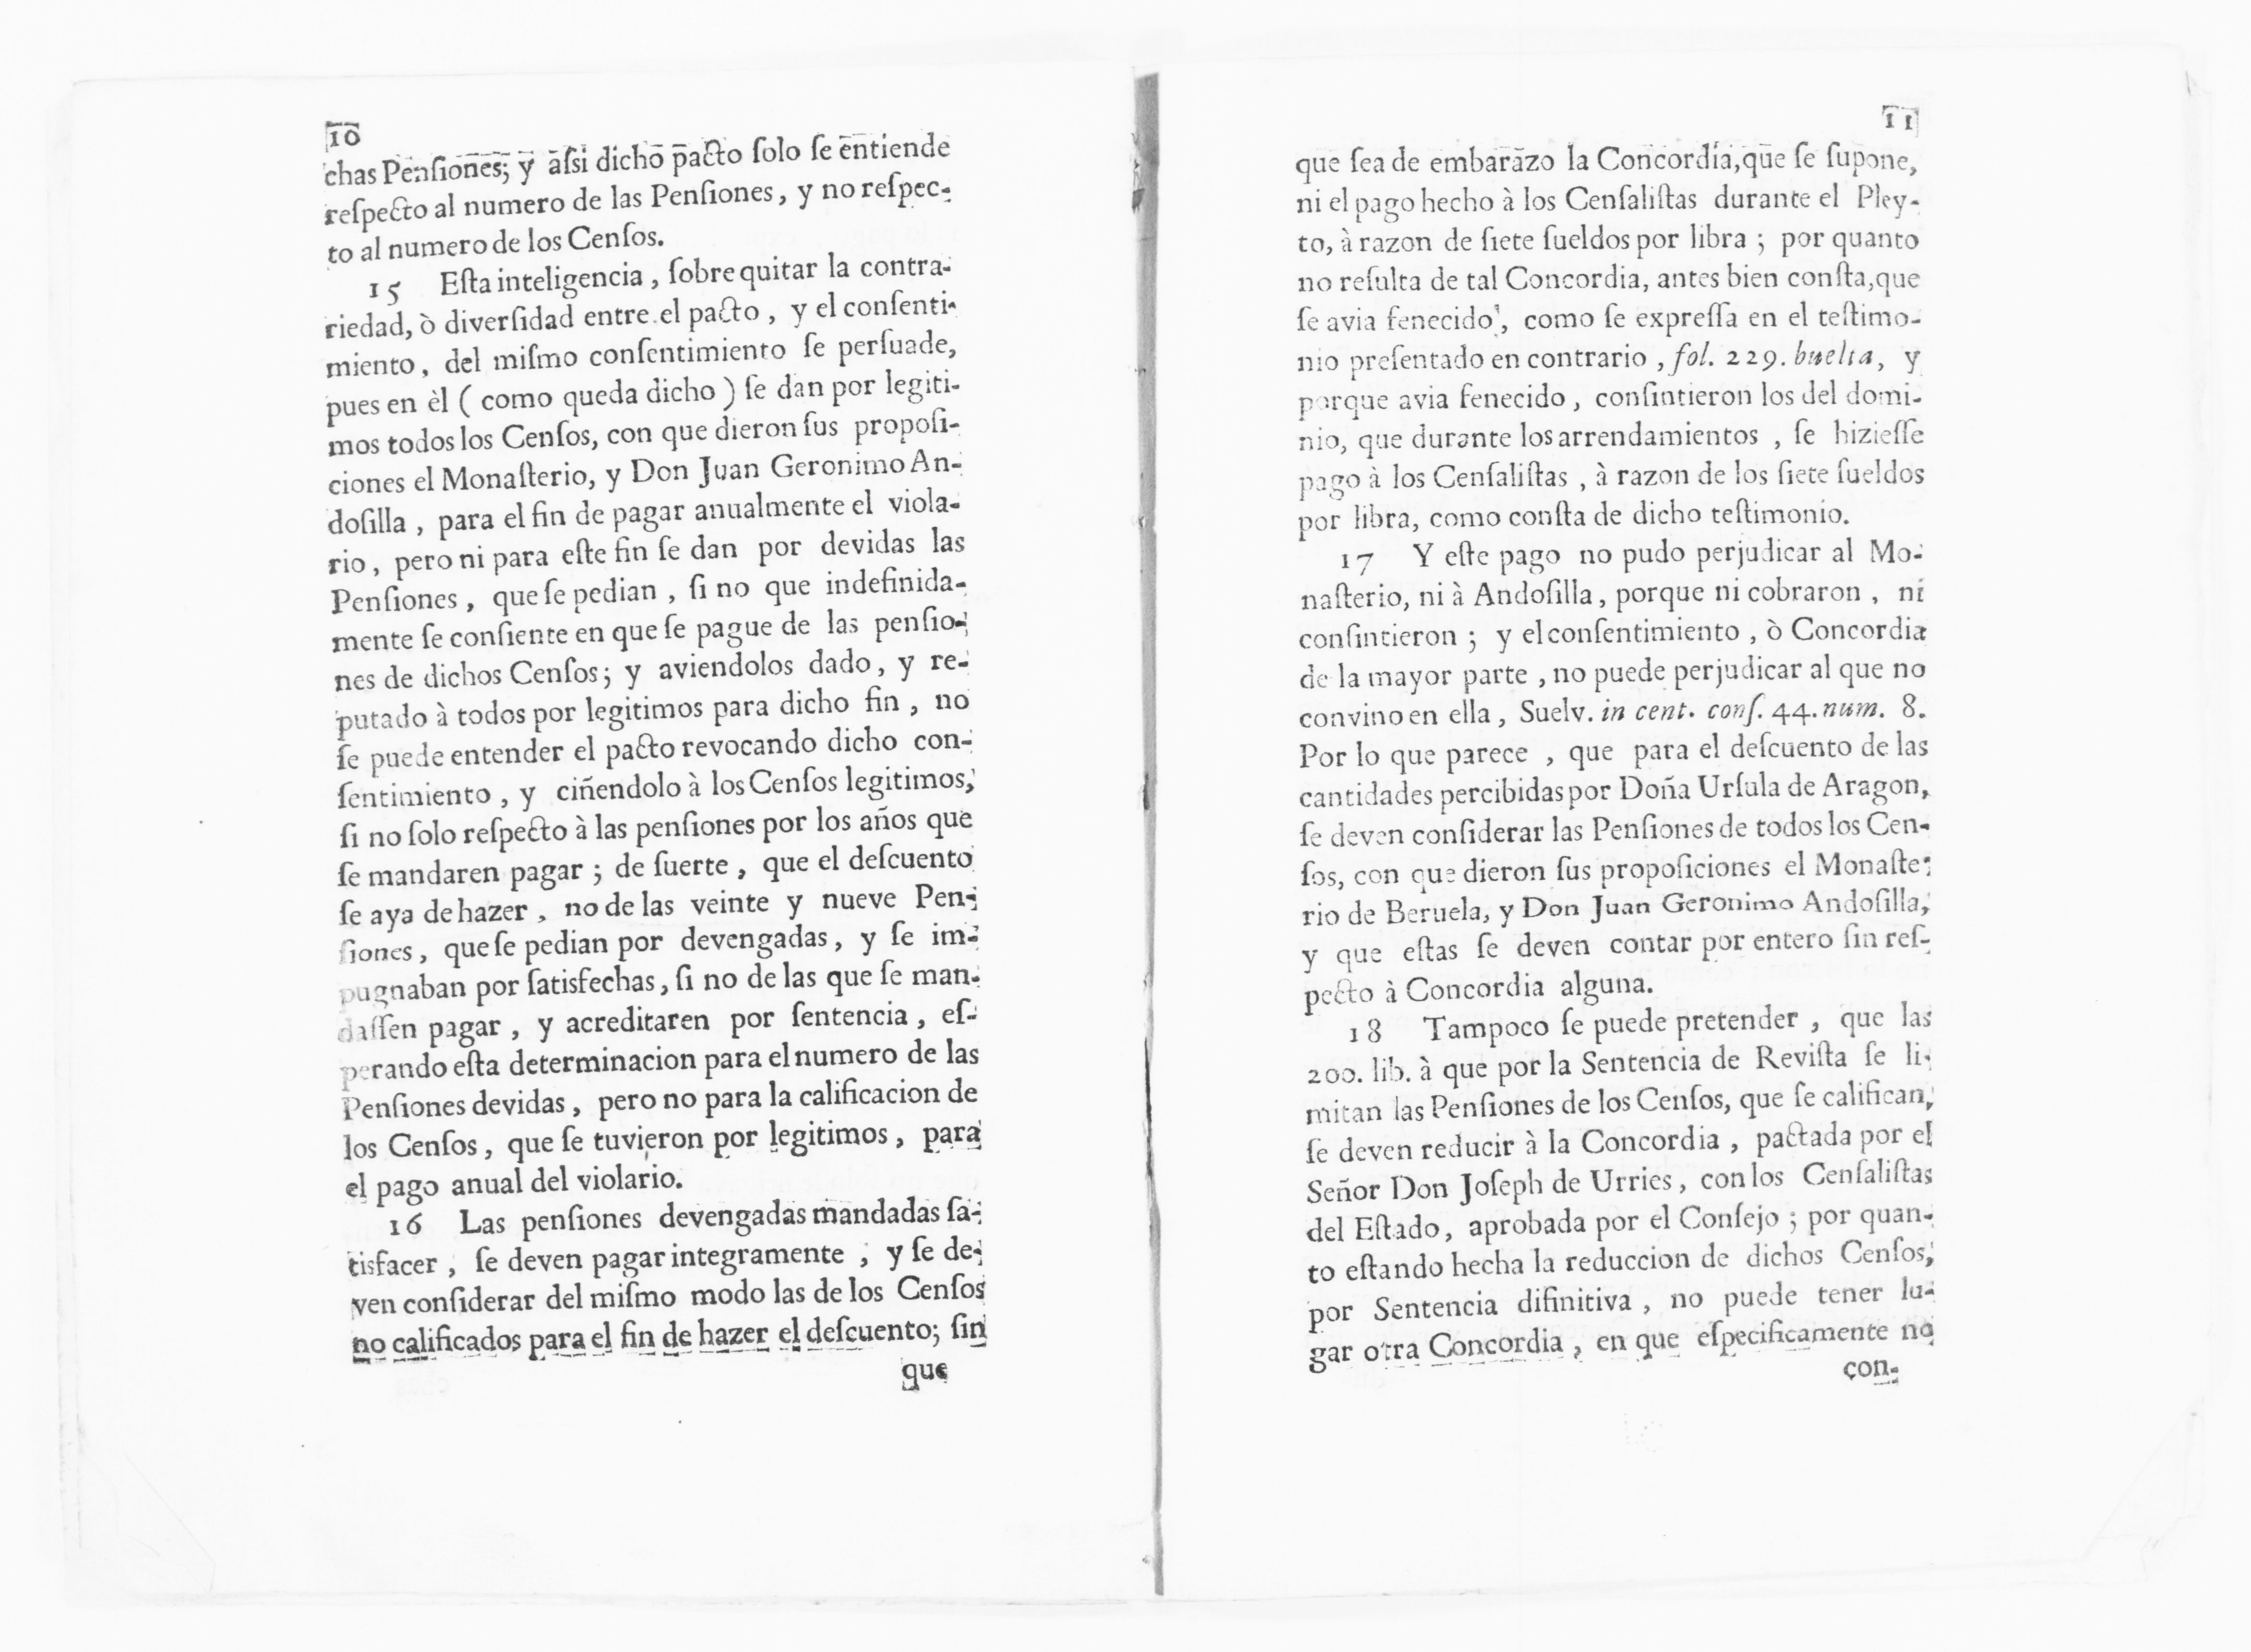 10
chas Penſiones; y aſsi dicho pacto ſolo ſe entiende
reſpecto al numero de las Penſiones, y no reſpec-
to al numero de los Cenſos.
15 Eſta inteligencia, ſobre quitar la contra-
riedad, ò diverſidad entre el pacto, y el conſenti-
miento, del miſmo conſentimiento ſe perſuade,
pues en èl ( como queda dicho ) ſe dan por legiti-
mos todos los Cenſos, con que dieron ſus propoſi-
ciones el Monaſterio, y Don Juan Geronimo An-
doſilla, para el fin de pagar anualmente el viola-
rio, pero ni para eſte fin ſe dan por devidas las
Penſiones, que ſe pedian, ſi no que indefinida-
mente ſe conſiente en que ſe pague de las penſio-
nes de dichos Cenſos; y aviendolos dado, y re-
putado à todos por legitimos para dicho fin, no
ſe puede entender el pacto revocando dicho con-
ſentimiento, y ciñendolo à los Cenſos legitimos,
ſi no ſolo reſpecto à las penſiones por los años que
ſe mandaren pagar; de ſuerte, que el deſcuento
ſe aya de hazer, no de las veinte y nueve Pen-
ſiones, que ſe pedian por devengadas, y ſe im-
pugnaban por ſatisfechas, ſi no de las que ſe man-
daſſen pagar, y acreditaren por ſentencia, eſ-
perando eſta determinacion para el numero de las
Penſiones devidas, pero no para la calificacion de
los Cenſos, que ſe tuvieron por legitimos, para
el pago anual del violario.
16 Las penſiones devengadas mandadas ſa-
tisfacer, ſe deven pagar integramente, y ſe de-
ven conſiderar del miſmo modo las de los Cenſos
no calificados para el fin de hazer el deſcuento; ſin
que
11
que ſea de embarazo la Concordia, que ſe ſupone,
ni el pago hecho à los Cenſaliſtas durante el Pley-
to, à razon de ſiete ſueldos por libra; por quanto
no reſulta de tal Concordia, antes bien conſta, que
ſe avia fenecido, como ſe expreſſa en el teſtimo-
nio preſentado en contrario, fol. 229. buelta, y
porque avia fenecido, conſintieron los del domi-
nio, que durante los arrendamientos, ſe hizieſſe
pago à los Cenſaliſtas, à razon de los ſiete ſueldos
por libra, como conſta de dicho teſtimonio.
17 Y eſte pago no pudo perjudicar al Mo-
naſterio, ni à Andoſilla, porque ni cobraron, ni
conſintieron; y el conſentimiento, ò Concordia
de la mayor parte, no puede perjudicar al que no
convino en ella, Suelv. in cent. conſ. 44. num. 8.
Por lo que parece, que para el deſcuento de las
cantidades percibidas por Doña Urſula de Aragon,
ſe deven conſiderar las Penſiones de todos los Cen-
ſos, con que dieron ſus propoſiciones el Monaſte-
rio de Beruela, y Don Juan Geronimo Andoſilla,
y que eſtas ſe deven contar por entero ſin reſ-
pecto à Concordia alguna.
18 Tampoco ſe puede pretender, que las
200. lib. à que por la Sentencia de Reviſta ſe li-
mitan las Penſiones de los Cenſos, que ſe califican,
ſe deven reducir à la Concordia, pactada por el
Señor Don Joſeph de Urries, con los Cenſaliſtas
del Eſtado, aprobada por el Conſejo; por quan-
to eſtando hecha la reduccion de dichos Cenſos,
por Sentencia difinitiva, no puede tener lu-
gar otra Concordia, en que eſpecificamente no
con-